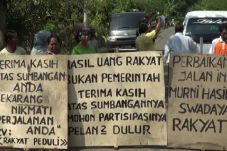 TERIMA KASIH
ATAS SUMBANGAN
ANDA
SEKARANG
NIKMATI
PERJALANAN
ANDA"
RAKYAT PEDULI
HASIL UANG RAKYAT
BUKAN PEMERINTAH
TERIMA KASIH
ATAS SUMBANGANNYA
MOHON PARTISIPASINYA
PELAN2 DULUR
PERBAIKAN
JALAN IN
MURNI HASIL
SWADAYA
RAKYAT